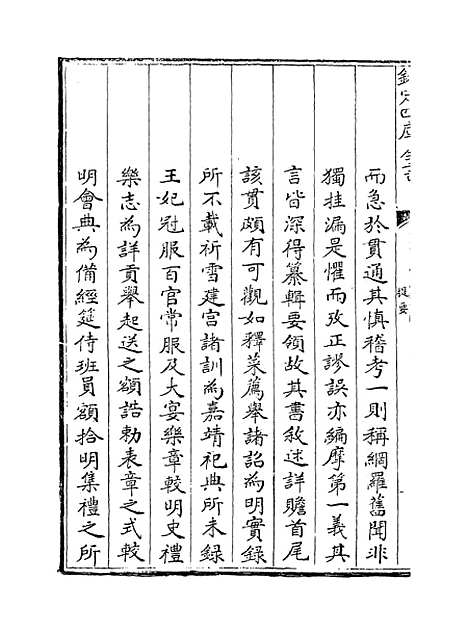 欽定四庫全書
提要
而急於貫通其慎稽考一則稱網羅舊聞非
獨挂漏是懼而攷正謬誤亦編摩第一義其
言皆深得纂輯要領故其書敘述詳贍首尾
該貫頗有可觀如釋菜薦舉諸詔為明實錄
所不載祈雪建宫諸訓為嘉靖祀典所未録
王妃冠服百官常服及大宴樂章較明史禮
樂志為詳貢舉起送之額誥勅表章之式較
明會典為備經筵侍班員額拾明集禮之所